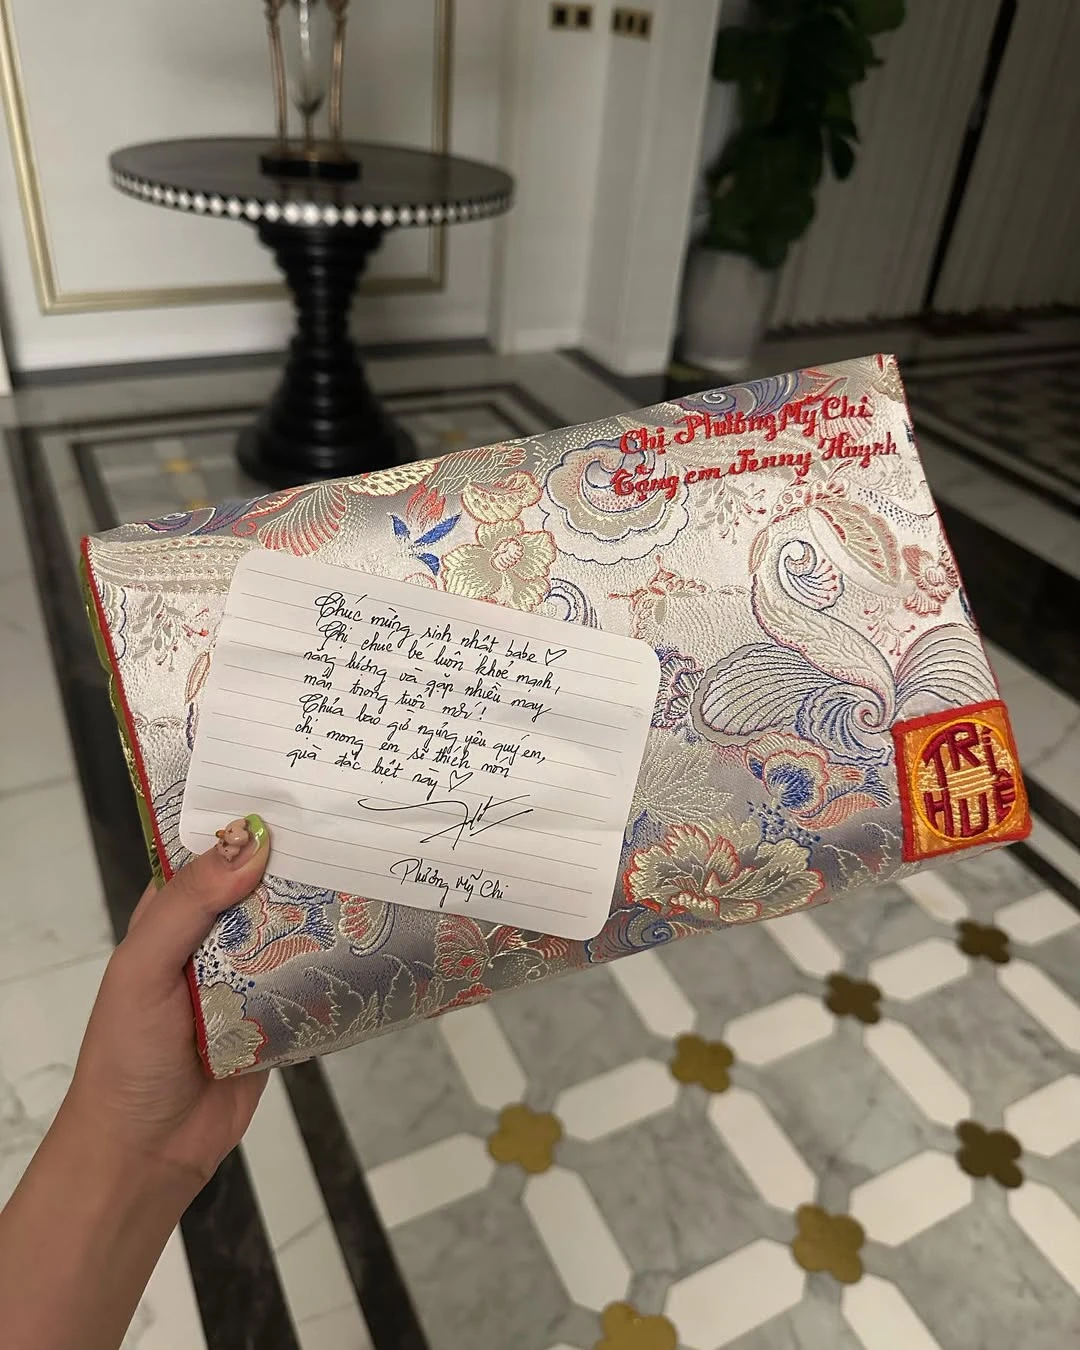 Chị Phương Mỹ Chi
Tặng em Jenny Huỳnh
Chúc mừng sinh nhật babe ♡
Chị chúc bé luôn khoẻ mạnh,
năng lượng và gặp nhiều may
mắn trong tuổi mới!
Chưa bao giờ ngừng yêu quý em,
chị mong em sẽ thích món
quà đặc biệt này ♡
Phương Mỹ Chi
TRÍ
HUÊ